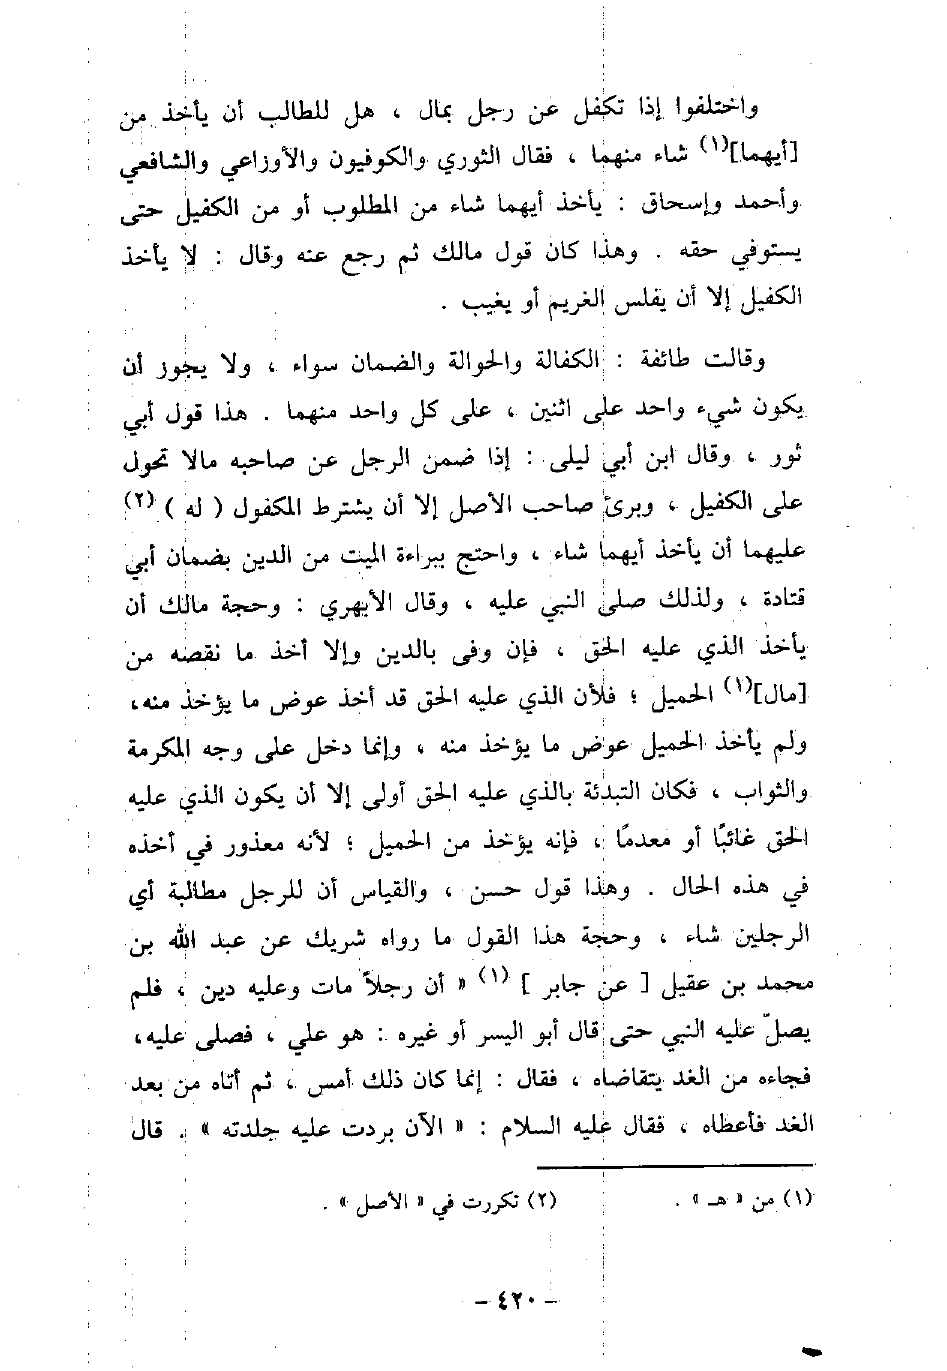 واختلفوا إذا تكفل عن رجل بمال ، هل للطالب أن يأخذ من
[أيهما](١) شاء منهما ، فقال الثوري والكوفيون والأوزاعي والشافعي
وأحمد وإسحاق : يأخذ أيهما شاء من المطلوب أو من الكفيل حتى
يستوفي حقه . وهذا كان قول مالك ثم رجع عنه وقال : لا يأخذ
الكفيل إلا أن يفلس الغريم أو يغيب .
وقالت طائفة : الكفالة والحوالة والضمان سواء ، ولا يجوز أن
يكون شيء واحد على اثنين ، على كل واحد منهما . هذا قول أبي
ثور ، وقال ابن أبي ليلى : إذا ضمن الرجل عن صاحبه مالا تحول
على الكفيل ، وبرئ صاحب الأصل إلا أن يشترط المكفول ( له ) (٢)
عليهما أن يأخذ أيهما شاء ، واحتج ببراءة الميت من الدين بضمان أبي
قتادة ، ولذلك صلى النبي عليه ، وقال الأبهري : وحجة مالك أن
يأخذ الذي عليه الحق ، فإن وفى بالدين وإلا أخذ ما نقصه من
[مال](١) الحميل ؛ فلأن الذي عليه الحق قد أخذ عوض ما يؤخذ منه،
ولم يأخذ الحميل عوض ما يؤخذ منه ، وإنما دخل على وجه المكرمة
والثواب ، فكان التبدئة بالذي عليه الحق أولى إلا أن يكون الذي عليه
الحق غائبًا أو معدمًا ، فإنه يؤخذ من الحميل ؛ لأنه معذور في أخذه
في هذه الحال . وهذا قول حسن ، والقياس أن للرجل مطالبة أي
الرجلين شاء ، وحجة هذا القول ما رواه شريك عن عبد الله بن
محمد بن عقيل [ عن جابر ] (١) « أن رجلاً مات وعليه دين ، فلم
يصلّ عليه النبي حتى قال أبو اليسر أو غيره : هو علي ، فصلى عليه،
فجاءه من الغد يتقاضاه ، فقال : إنما كان ذلك أمس ، ثم أتاه من بعد
الغد فأعطاه ، فقال عليه السلام : « الآن بردت عليه جلدته » . قال
(١) من « هـ » . (٢) تكررت في « الأصل » .
- ٤٢٠ -